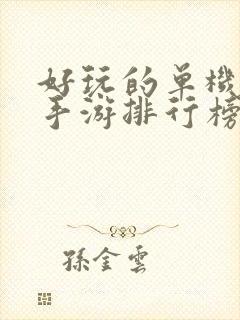 好玩的单機
手游排行榜
孫金雲